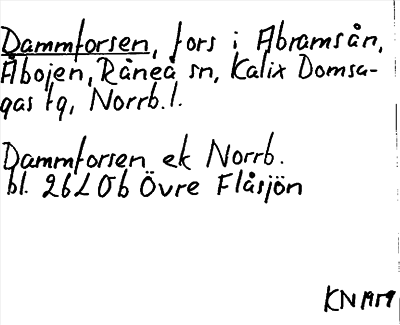 Dammforsen, fors i Abramsån,
Åbojen, Råneå sn, Kalix Domsa-
gas tg, Norrb. l.
Dammforsen ek Norrb.
bl. 26L 0b Övre Flåsjön
KN 1959